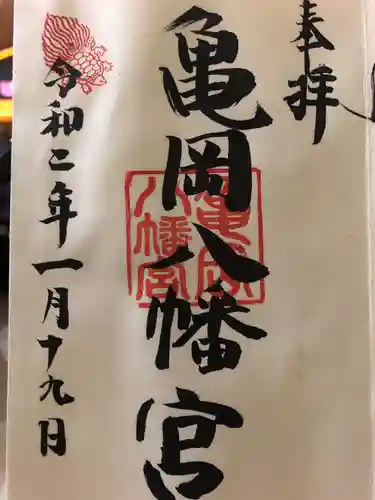 奉拝
亀岡八幡宮
亀岡
八幡宮
令和二年一月十九日